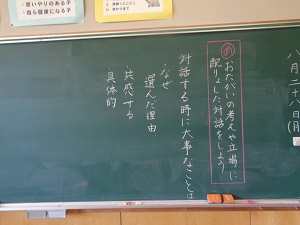 ・思いやりのある子
・自ら健康になる子
八月二十八日(月)
め
おたがいの考えや立場に
配りょした対話をしよう
対話する時に大事なことは
・なぜ
選んだ理由
・共感する
・具体的